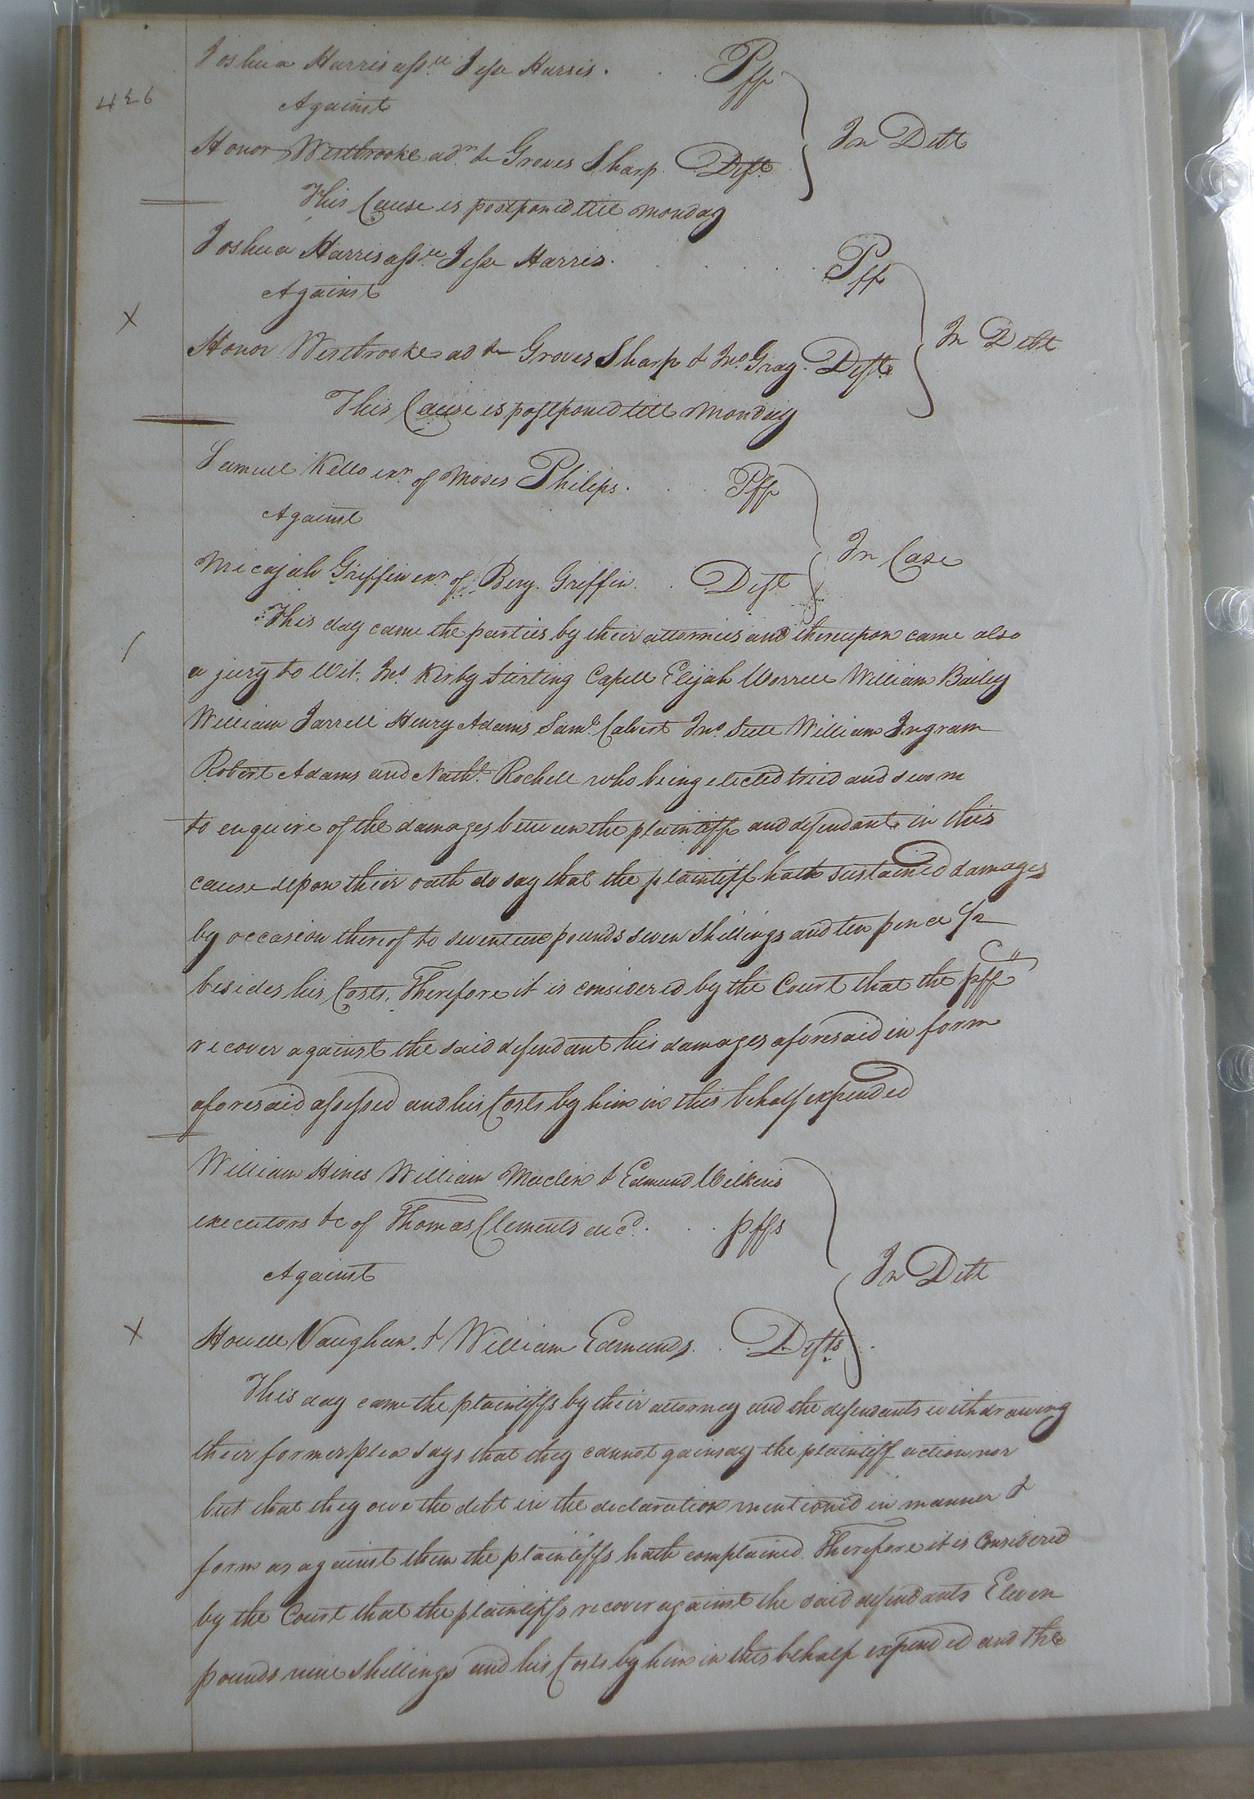 426
Joshua Harris assee Jesse Harris . . Plff
Against
Honor Westbrooke adm &c Groves Sharp Deft
In Debt
This Cause is postponed till monday
Joshua Harris assee Jesse Harris . . . . Plff
Against
X
Honor Westbrooke ad &c Groves Sharp & Jno Gray Defts
In Debt
This Cause is postponed till monday
Samuel Kello exr of Moses Philips . . Plff
Against
In Case
Micajah Griffin exr of Benj. Griffin . Deft
This day came the parties by their attornies and thereupon came also
a jury to wit. Jno Kirby Stirling Capell Elijah Worrell William Bailey
William Jarrell Henry Adams Saml Calvert Jno Sill William Ingram
Robert Adams and Nathl Rochell who being elected tried and sworn
to enquire of the damages between the plaintiff and defendant in this
cause upon their oath do say that the plaintiff hath sustained damages
by occasion thereof to seventeen pounds seven shillings and ten pence 1/2
besides his Costs, Therefore it is considered by the Court that the plff
recover against the said defendant his damages aforesaid in form
aforesaid assessed and his Costs by him in this behalf expended
William Hines William Maclin & Edmund Wilkins
executors &c of Thomas Clements decd . . plffs
Against
In Debt
X
Howell Vaughan & William Edmunds . . Defts
This day came the plaintiffs by their attorney and the defendants withdrawing
their former plea says that they cannot gainsay the plaintiff action nor
but that they owe the debt in the declaration mentioned in manner &
form as against them the plaintiffs hath complained Therefore it is Considered
by the Court that the plaintiffs recover against the said defendants Eleven
pounds nine shillings and his Costs by him in this behalf expended and the